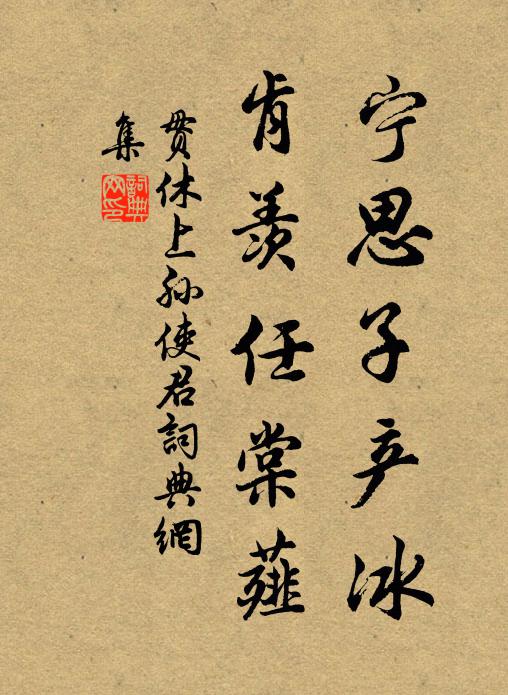 宁思子产冰
肯羡任棠薤
贯休上孙使君詞典網
集
詞典網印